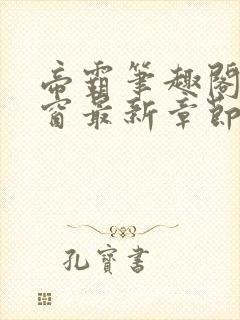 帝霸筆趣閣
窗最新章節
孔寶書